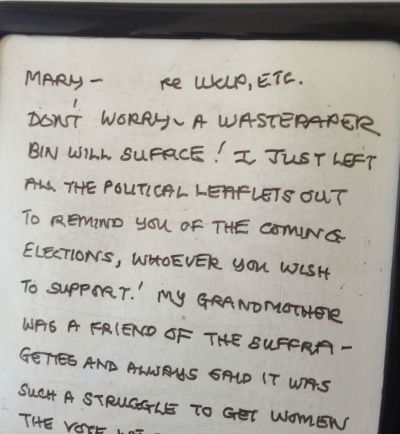 MARY – re UKIP, ETC.
DON'T WORRY ~ A WASTEPAPER
BIN WILL SUFFICE! I JUST LEFT
ALL THE POLITICAL LEAFLETS OUT
TO REMIND YOU OF THE COMING
ELECTIONS, WHOEVER YOU WISH
TO SUPPORT! MY GRANDMOTHER
WAS A FRIEND OF THE SUFFRA-
GETTES AND ALWAYS SAID IT WAS
SUCH A STRUGGLE TO GET WOMEN
THE VOTE